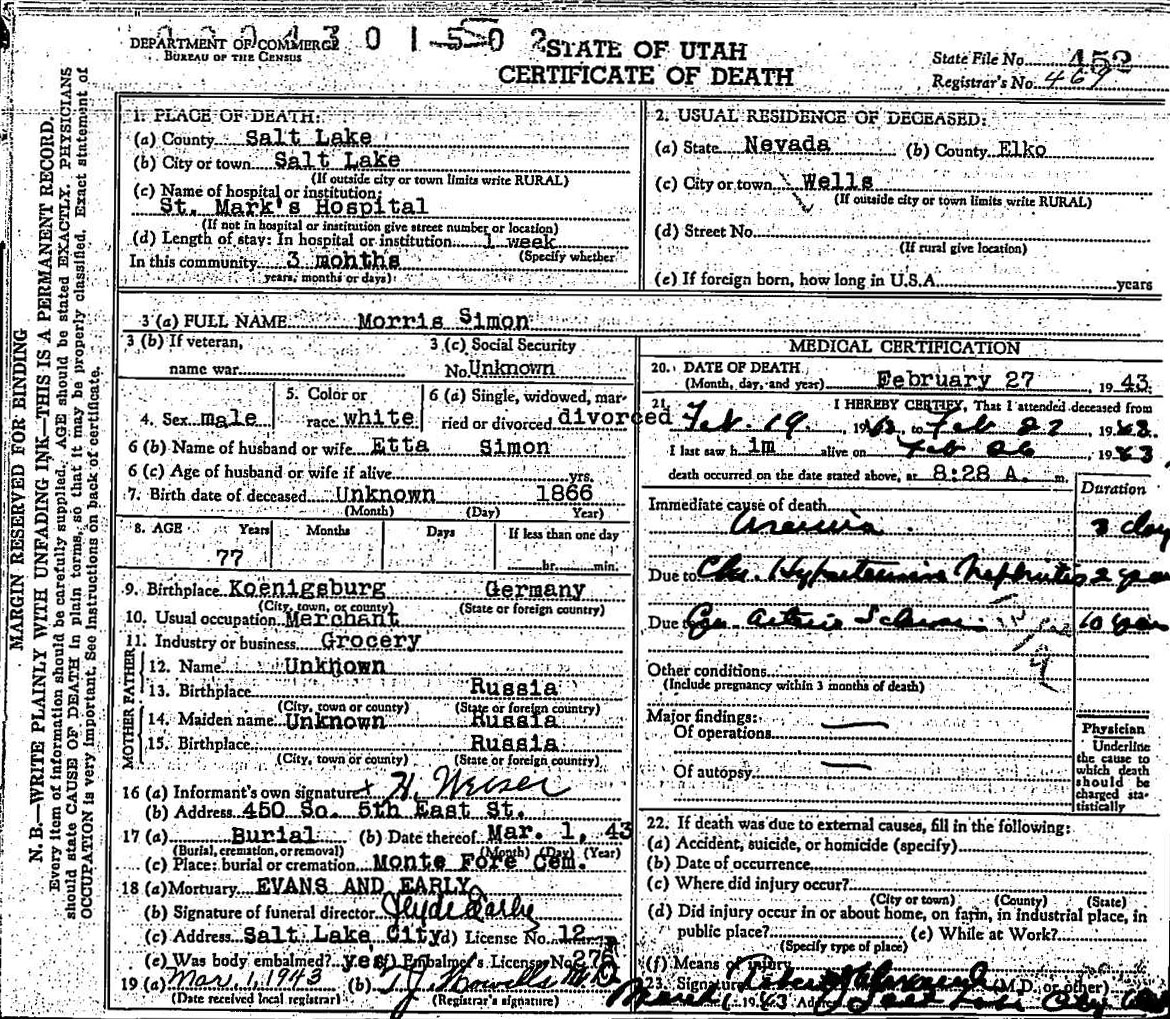 DEPARTMENT OF COMMERCE
BUREAU OF THE CENSUS
STATE OF UTAH
CERTIFICATE OF DEATH
State File No. 452
Registrar's No. 469
MARGIN RESERVED FOR BINDING
N. B.—WRITE PLAINLY WITH UNFADING INK—THIS IS A PERMANENT RECORD.
Every item of information should be carefully supplied. AGE should be stated EXACTLY. PHYSICIANS
should state CAUSE OF DEATH in plain terms, so that it may be properly classified. Exact statement of
OCCUPATION is very important. See instructions on back of certificate.
1. PLACE OF DEATH:
(a) County Salt Lake
(b) City or town Salt Lake
(If outside city or town limits write RURAL)
(c) Name of hospital or institution:
St. Mark's Hospital
(If not in hospital or institution give street number or location)
(d) Length of stay: In hospital or institution 1 week
(Specify whether
In this community 3 months
years, months or days)
2. USUAL RESIDENCE OF DECEASED:
(a) State Nevada (b) County Elko
(c) City or town Wells
(If outside city or town limits write RURAL)
(d) Street No.
(If rural give location)
(e) If foreign born, how long in U.S.A. years
3 (a) FULL NAME Morris Simon
3 (b) If veteran,
name war
3 (c) Social Security
No. Unknown
4. Sex male
5. Color or
race white
6 (a) Single, widowed, mar-
ried or divorced divorced
6 (b) Name of husband or wife Etta Simon
6 (c) Age of husband or wife if alive yrs.
7. Birth date of deceased Unknown 1866
(Month) (Day) Year)
8. AGE Years Months Days If less than one day
77 hr. min.
9. Birthplace Koenigsburg Germany
(City, town, or county) (State or foreign country)
10. Usual occupation Merchant
11. Industry or business Grocery
FATHER
12. Name Unknown
13. Birthplace Russia
(City, town or county) (State or foreign country)
MOTHER
14. Maiden name Unknown Russia
15. Birthplace Russia
(City, town or county) (State or foreign country)
16 (a) Informant's own signature x H. Weiser
(b) Address 450 So. 5th East St.
17 (a) Burial (b) Date thereof Mar. 1, 43
(Burial, cremation, or removal) (Month) (Day) (Year)
(c) Place: burial or cremation Monte Fore Cem.
18 (a) Mortuary EVANS AND EARLY
(b) Signature of funeral director Clyde Early
(c) Address Salt Lake City (d) License No. 12
(e) Was body embalmed? yes (f) Embalmer's License No. 276
19 (a) Mar. 1, 1943 (b) T J Howells M.D.
(Date received local registrar) (Registrar's signature)
MEDICAL CERTIFICATION
20. DATE OF DEATH
(Month, day, and year) February 27 1943
21. I HEREBY CERTIFY, That I attended deceased from
Feb. 19, 1943, to Feb 27, 1943.
I last saw him alive on Feb 26 1943,
death occurred on the date stated above, at 8:28 A. m.
Duration
Immediate cause of death
Uremia 3 day
Due to Chr. Hypertensive Nephritis 2 year
Due to Gen Arterio Sclerosis 10 years
Other conditions
(Include pregnancy within 3 months of death)
Major findings:
Of operations —
Of autopsy —
Physician
Underline
the cause to
which death
should be
charged sta-
tistically
22. If death was due to external causes, fill in the following:
(a) Accident, suicide, or homicide (specify)
(b) Date of occurrence
(c) Where did injury occur?
(City or town) (County) (State)
(d) Did injury occur in or about home, on farm, in industrial place, in
public place? (e) While at Work?
(Specify type of place)
(f) Means of injury
23. Signature (M.D. or other)
March 1, 1943 Address Salt Lake City